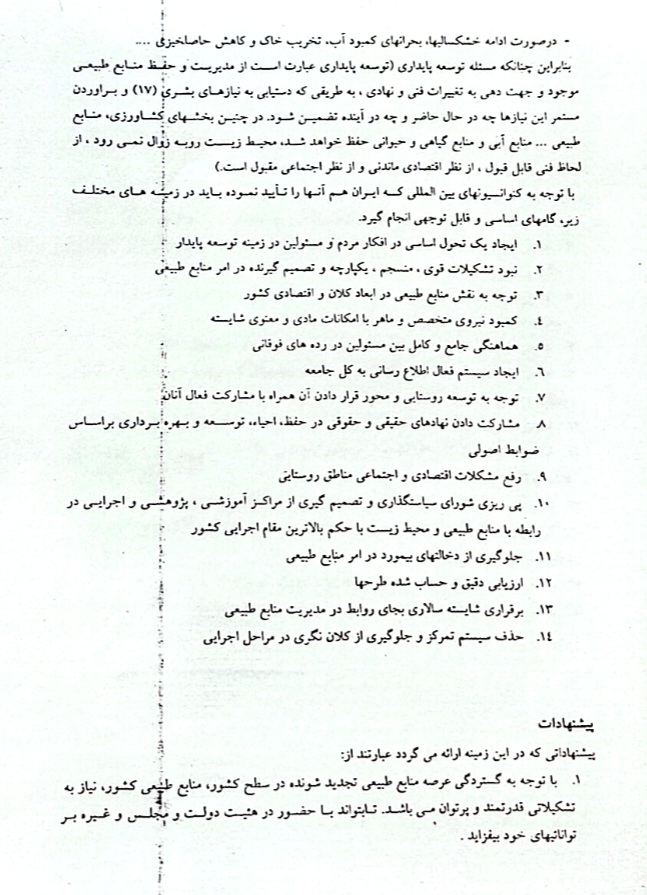 - درصورت ادامه خشکسالیها، بحرانهای کمبود آب، تخریب خاک و کاهش حاصلخیزی ....
بنابراین چنانکه مسئله توسعه پایداری (توسعه پایداری عبارت است از مدیریت و حفظ منابع طبیعی
موجود و جهت دهی به تغییرات فنی و نهادی ، به طریقی که دستیابی به نیازهای بشری (۱۷) و براوردن
مستمر این نیازها چه در حال حاضر و چه در آینده تضمین شود. در چنین بخشهای کشاورزی، منابع
طبیعی ... منابع آبی و منابع گیاهی و حیوانی حفظ خواهد شد، محیط زیست روبه زوال نمی رود ، از
لحاظ فنی قابل قبول ، از نظر اقتصادی ماندنی و از نظر اجتماعی مقبول است.)
با توجه به کنوانسیونهای بین المللی که ایران هم آنها را تأیید نموده باید در زمینه های مختلف
زیر، گامهای اساسی و قابل توجهی انجام گیرد.
۱. ایجاد یک تحول اساسی در افکار مردم و مسئولین در زمینه توسعه پایدار
۲. نبود تشکیلات قوی ، منسجم ، یکپارچه و تصمیم گیرنده در امر منابع طبیعی
۳. توجه به نقش منابع طبیعی در ابعاد کلان و اقتصادی کشور
۴. کمبود نیروی متخصص و ماهر با امکانات مادی و معنوی شایسته
۵. هماهنگی جامع و کامل بین مسئولین در رده های فوقانی
۶. ایجاد سیستم فعال اطلاع رسانی به کل جامعه
۷. توجه به توسعه روستایی و محور قرار دادن آن همراه با مشارکت فعال آنان
۸. مشارکت دادن نهادهای حقیقی و حقوقی در حفظ، احیاء، توسعه و بهره برداری براساس
ضوابط اصولی
۹. رفع مشکلات اقتصادی و اجتماعی مناطق روستایی
۱۰. پی ریزی شورای سیاستگذاری و تصمیم گیری از مراکز آموزشی ، پژوهشی و اجرایی در
رابطه با منابع طبیعی و محیط زیست با حکم بالاترین مقام اجرایی کشور
۱۱. جلوگیری از دخالتهای بیمورد در امر منابع طبیعی
۱۲. ارزیابی دقیق و حساب شده طرحها
۱۳. برقراری شایسته سالاری بجای روابط در مدیریت منابع طبیعی
۱۴. حذف سیستم تمرکز و جلوگیری از کلان نگری در مراحل اجرایی
پیشنهادات
پیشنهاداتی که در این زمینه ارائه می گردد عبارتند از:
۱. با توجه به گستردگی عرصه منابع طبیعی تجدید شونده در سطح کشور، منابع طبیعی کشور، نیاز به
تشکیلاتی قدرتمند و پرتوان می باشد. تابتواند با حضور در هئیت دولت و مجلس و غیره بر
توانائیهای خود بیفزاید .